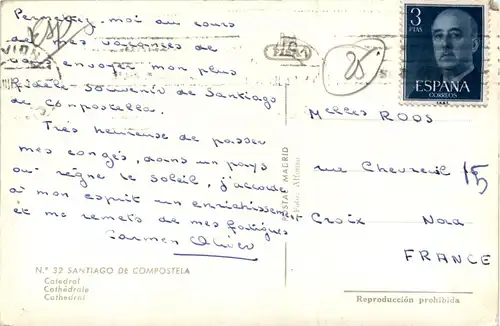 Permettez-moi au cours
de mes vacances de
vous envoyer mon plus
fidèle souvenir de Santiago
de Compostella.
Très heureuse de passer
mes congés, dans un pays
où règne le soleil, j'accorde
à mon esprit un enrichissement
et me remets de mes fatigues
Carmen Oliver
N.º 32 SANTIAGO DE COMPOSTELA
Catedral
Cathédrale
Cathedral
POSTAL MADRID
Foto: Alfonso
25
3
PTAS
ESPAÑA
CORREOS
Melles ROOS
rue Chevreul 15
Croix Nord
FRANCE
Reproducción prohibida